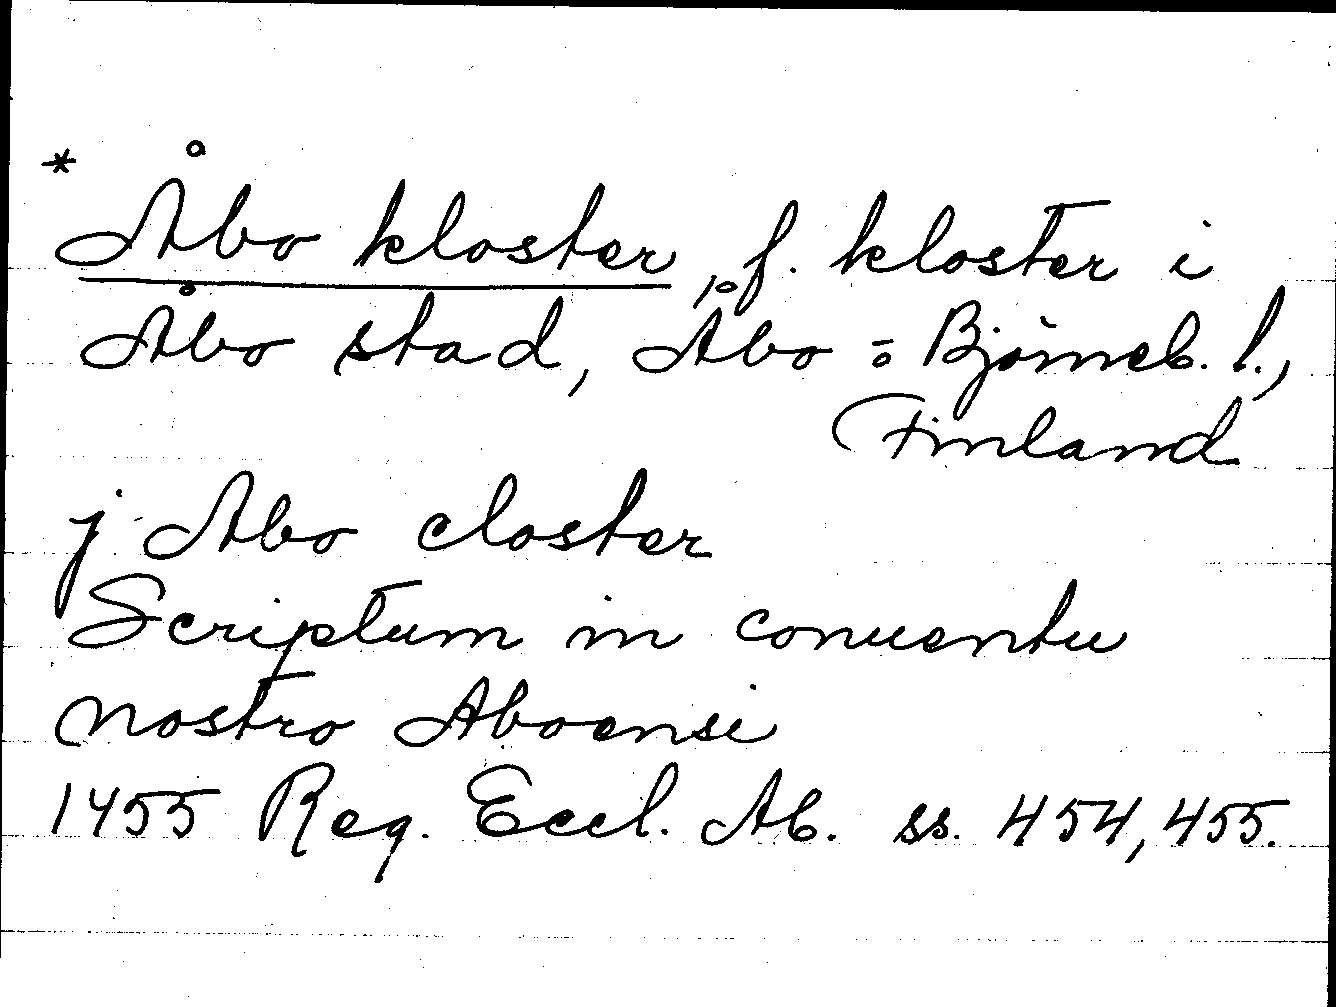 * Åbo kloster, f. kloster i
Åbo stad, Åbo = Björneb. l.,
Finland
j Abo closter
Scriptum in conuentu
nostro Aboensi
1455 Reg. Eccl. Ab. ss. 454, 455.